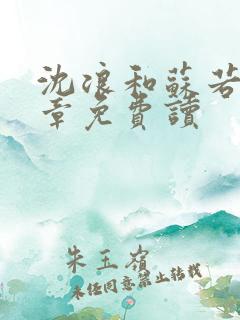 沈浪和蘇若
章免費讀
朱玉嶺
未經同意禁止轉載